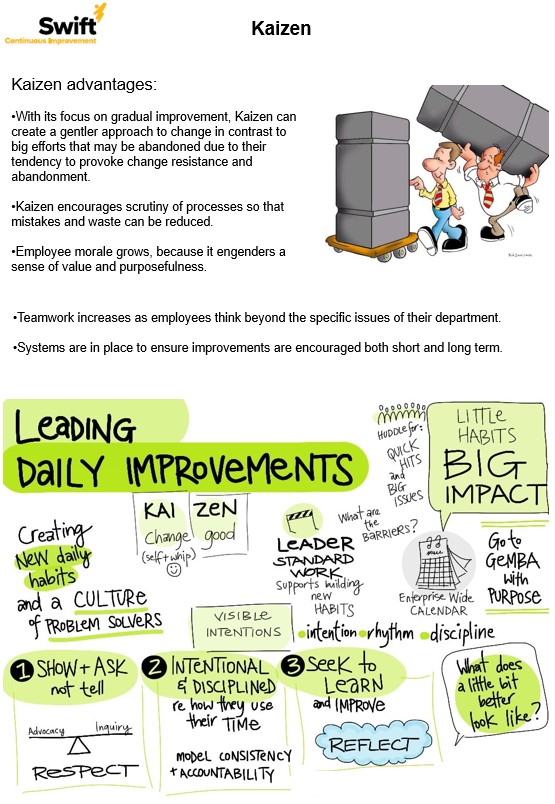 Swift
Continuous Improvement
Kaizen
Kaizen advantages:
•With its focus on gradual improvement, Kaizen can
create a gentler approach to change in contrast to
big efforts that may be abandoned due to their
tendency to provoke change resistance and
abandonment.
•Kaizen encourages scrutiny of processes so that
mistakes and waste can be reduced.
•Employee morale grows, because it engenders a
sense of value and purposefulness.
•Teamwork increases as employees think beyond the specific issues of their department.
•Systems are in place to ensure improvements are encouraged both short and long term.
LEADING
DAILY IMPROVEMENTS
HUDDLE for:
QUICK
HITS
and
BIG
ISSUES
LITTLE
HABITS
BIG
IMPACT
KAI ZEN
Change good
(self + whip)
Creating
NEW daily
habits
and a CULTURE
of PROBLEM SOLVERS
LEADER
STANDARD
WORK
Supports building
new
HABITS
What are
the
BARRIERS?
Enterprise Wide
CALENDAR
Go to
GEMBA
with
PURPOSE
VISIBLE
INTENTIONS
•intention •rhythm •discipline
1 SHOW + ASK
not tell
Advocacy Inquiry
RESPECT
2 INTENTIONAL
& DISCIPLINED
re how they use
their TIME
MODEL CONSISTENCY
+ ACCOUNTABILITY
3 SEEK to
LEARN
and IMPROVE
REFLECT
What does
a little bit
better
look like?